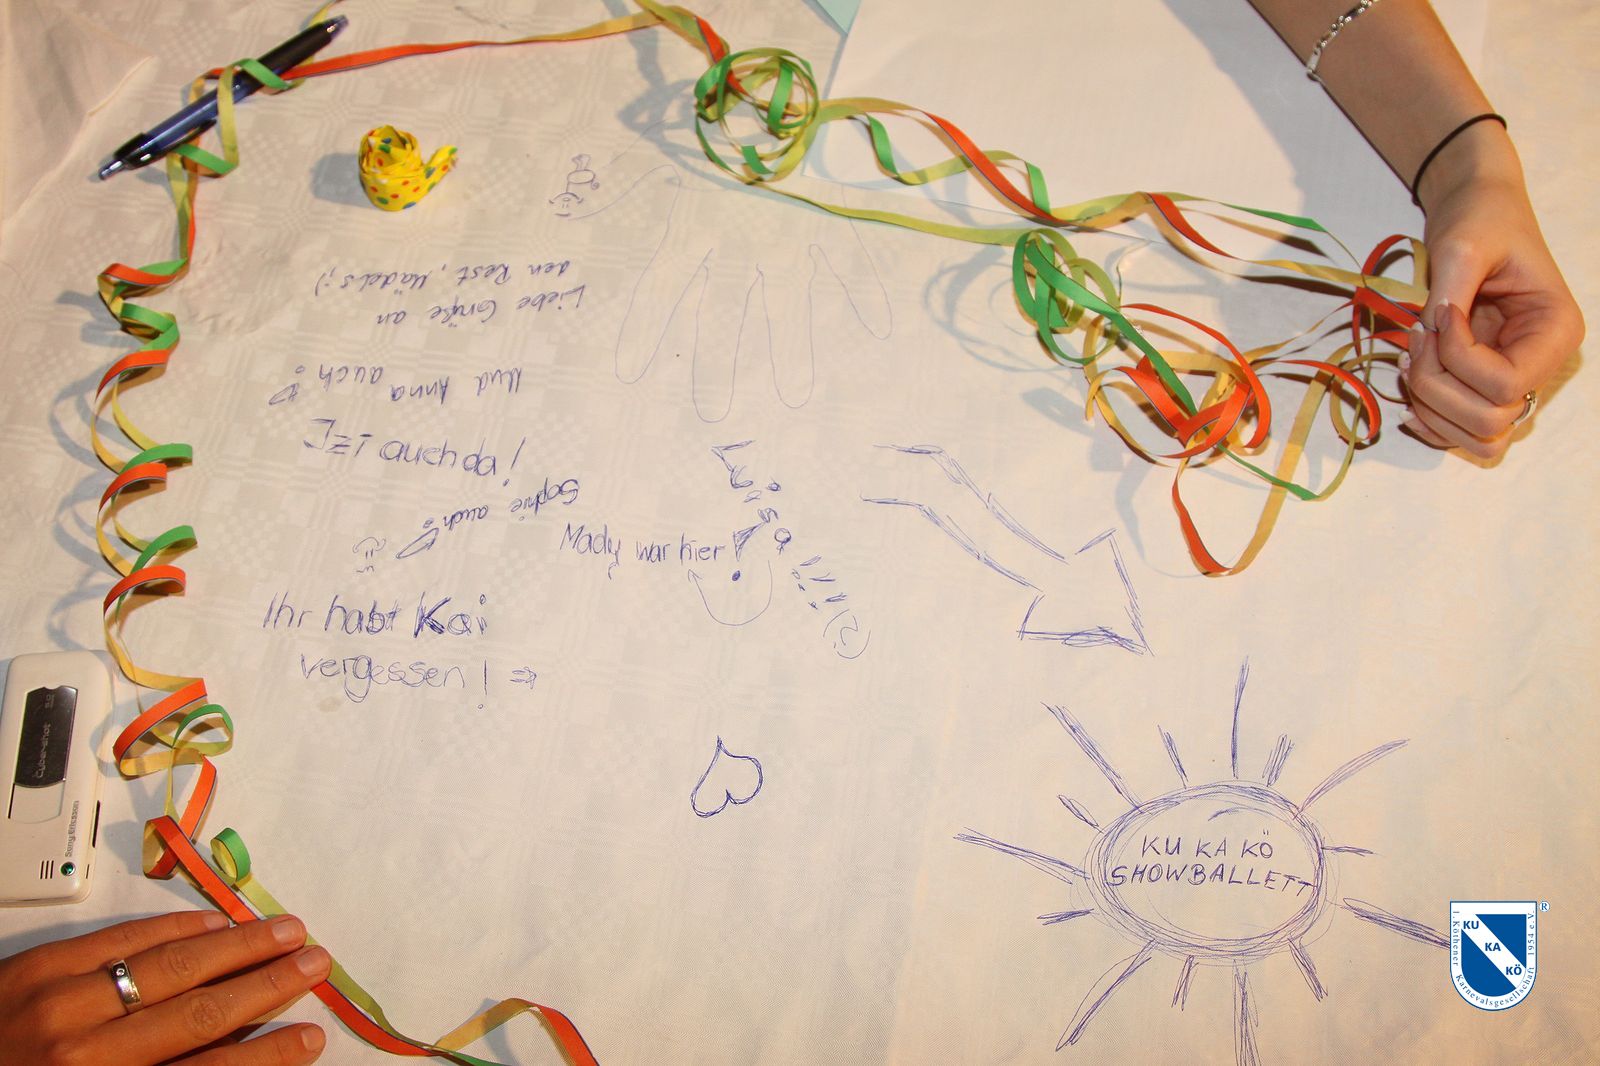 Liebe Grüße an
den Rest, Mädels ;)
Und Anna auch!
auch da!
Sophie auch!
Mady war hier!
Ihr habt Kai
vergessen!
KU KA KÖ
SHOWBALLETT
Cyber-shot
5.0
Sony Ericsson
KU
KA
KÖ
1. Köthener Karnevalsgesellschaft 1954 e.V.
®